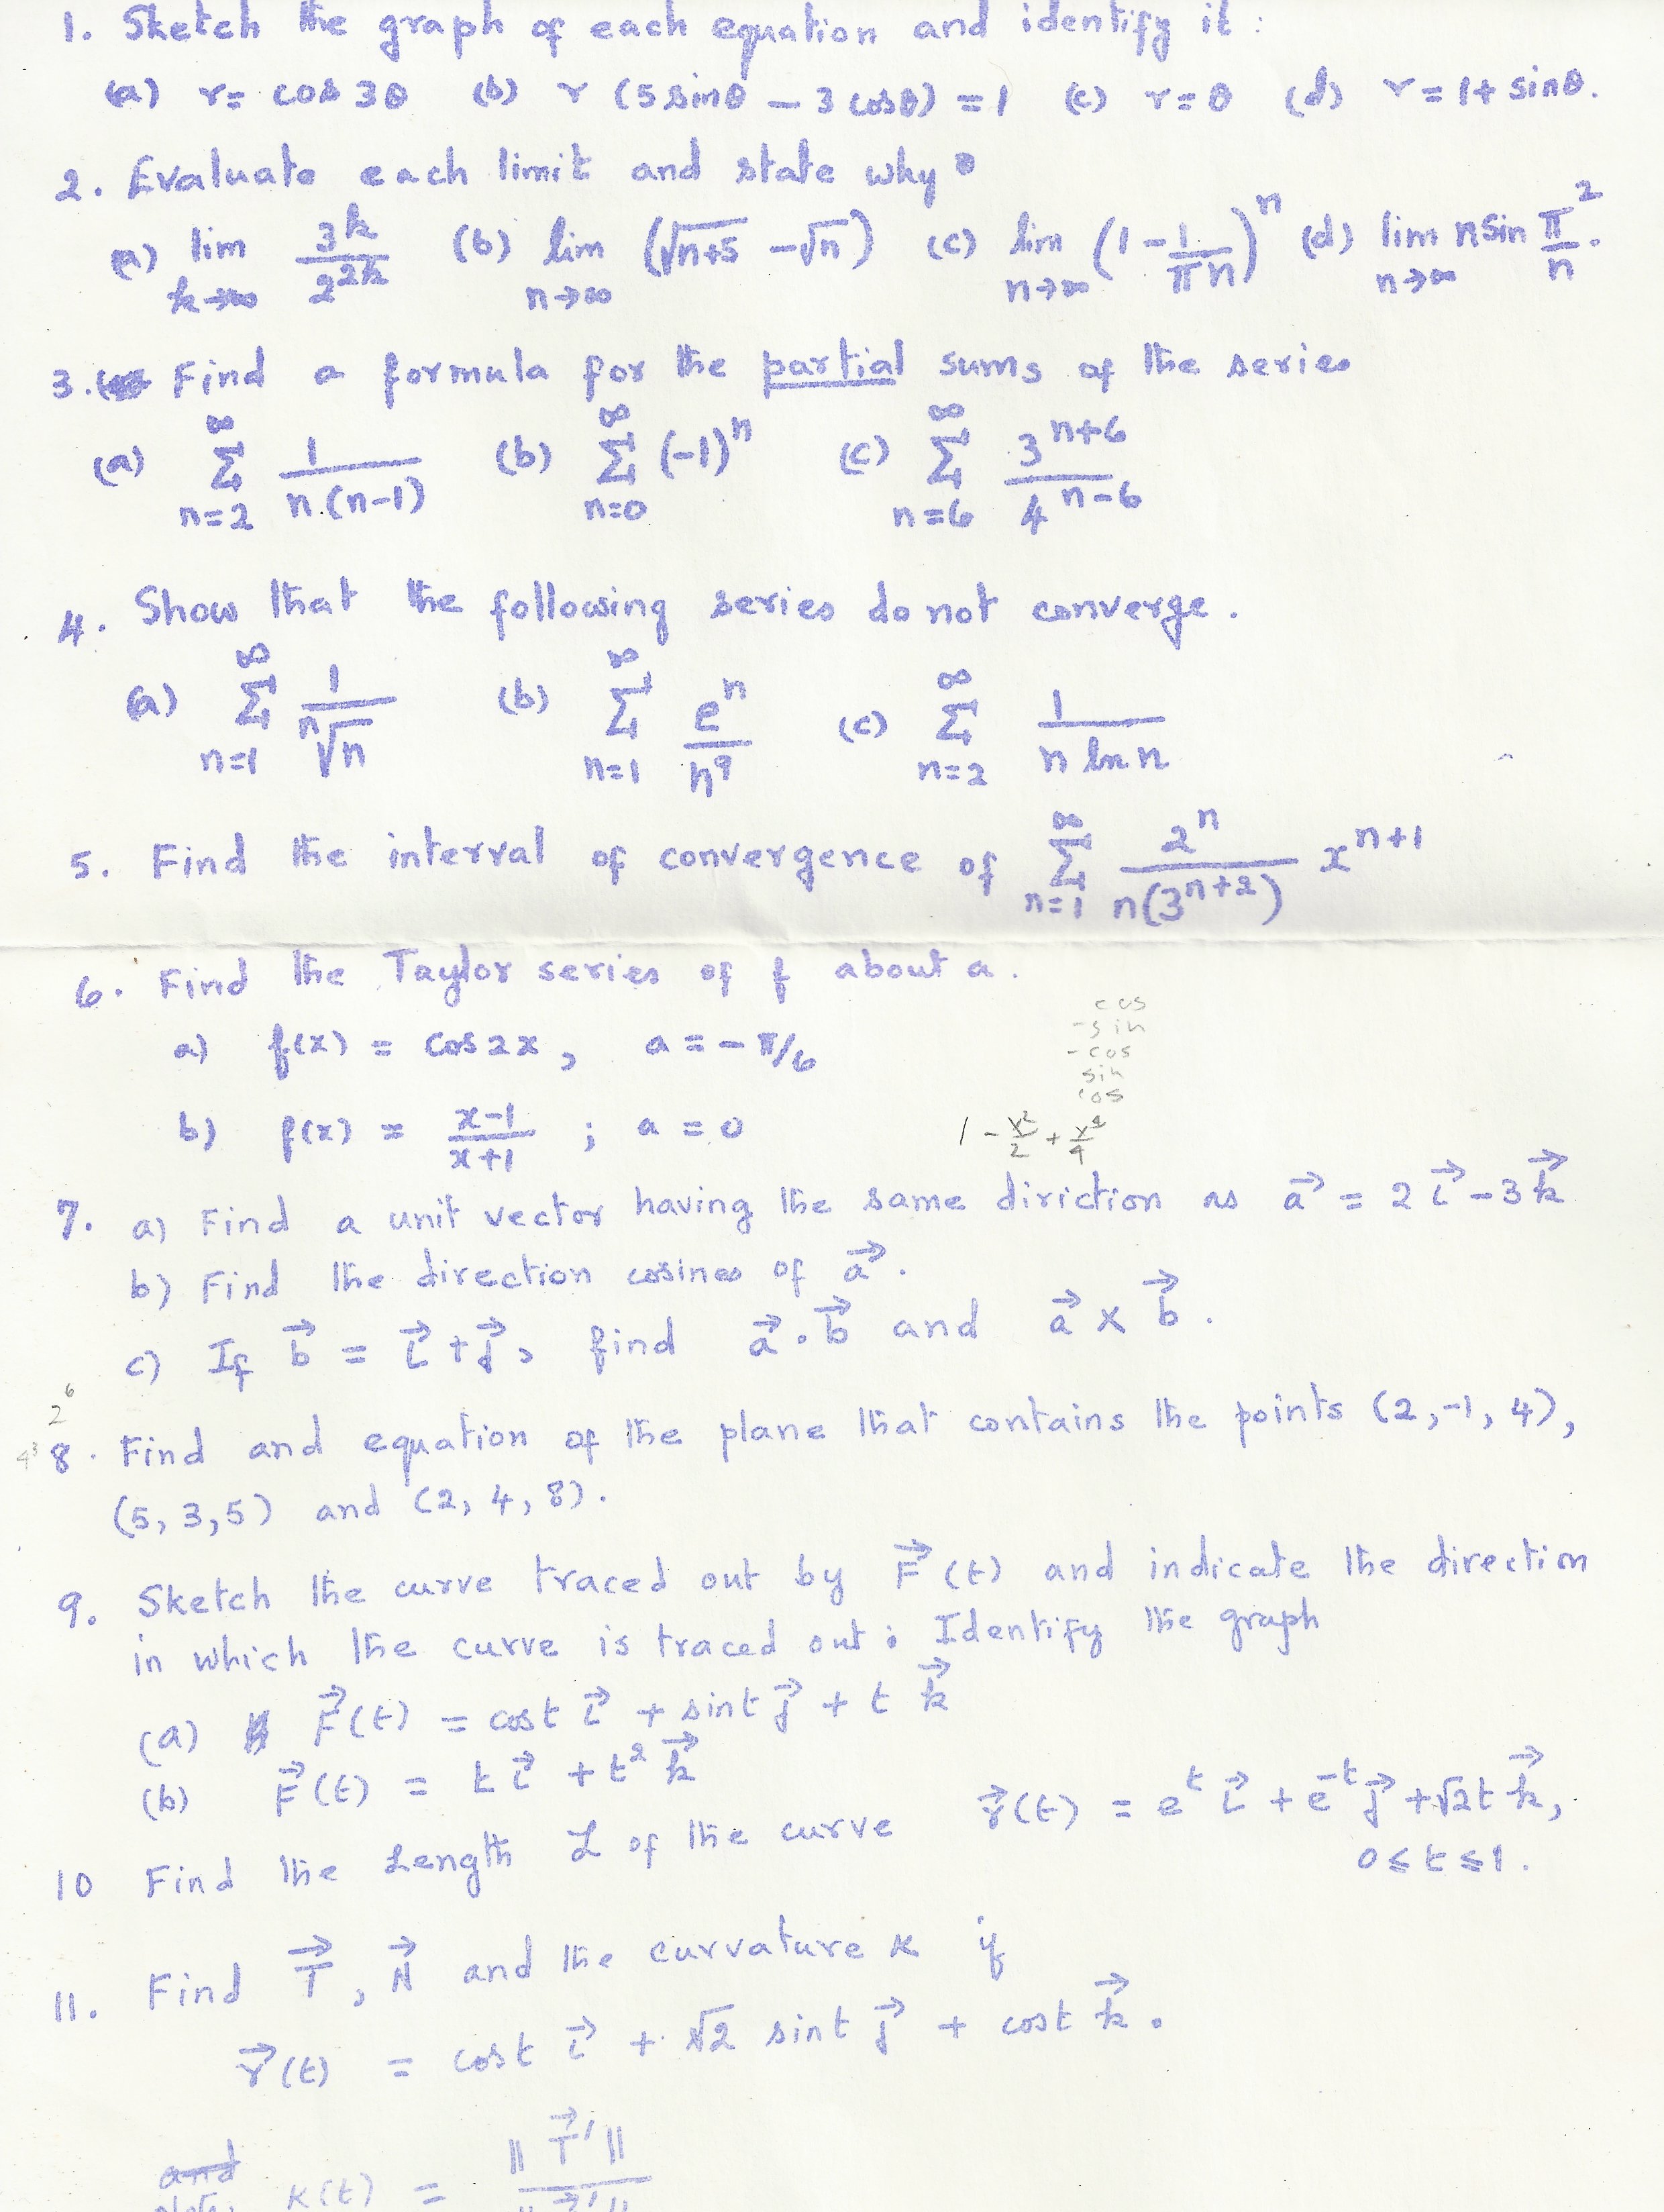 1. Sketch the graph of each equation and identify it :
(a) r = cos 3θ (b) r (5 sinθ − 3 cosθ) = 1 (c) r = θ (d) r = 1 + sinθ.
2. Evaluate each limit and state why
(a) lim k→∞ 3^k / 2^2k (b) lim n→∞ (√n+5 − √n) (c) lim n→∞ (1 − 1/πn)^n (d) lim n→∞ n sin π^2/n.
3. Find a formula for the partial sums of the series
(a) ∞ Σ n=2 1/n.(n−1) (b) ∞ Σ n=0 (−1)^n (c) ∞ Σ n=6 3^n+6 / 4^n−6
4. Show that the following series do not converge.
(a) ∞ Σ n=1 1/ n√n (b) ∞ Σ n=1 e^n / n^9 (c) ∞ Σ n=2 1 / n ln n
5. Find the interval of convergence of ∞ Σ n=1 2^n / n(3^n+2) x^n+1
6. Find the Taylor series of f about a.
cos
-sin
-cos
sin
cos
a) f(x) = cos 2x, a = − π/6
b) f(x) = x−1 / x+1 ; a = 0
1 − x²/2 + x⁴/4
7. a) Find a unit vector having the same diriction as a⃗ = 2 i⃗ − 3 k⃗
b) Find the direction cosines of a⃗.
c) If b⃗ = i⃗ + j⃗, find a⃗ · b⃗ and a⃗ × b⃗.
2^6
4^3
8. Find and equation of the plane that contains the points (2, −1, 4),
(5, 3, 5) and (2, 4, 8).
9. Sketch the curve traced out by F⃗(t) and indicate the direction
in which the curve is traced out. Identify the graph
(a) F⃗(t) = cost i⃗ + sint j⃗ + t k⃗
(b) F⃗(t) = t i⃗ + t² k⃗
10 Find the Length L of the curve r⃗(t) = e^t i⃗ + e^−t j⃗ + √2 t k⃗,
0 ≤ t ≤ 1.
11. Find T⃗, N⃗ and the curvature κ if
r⃗(t) = cost i⃗ + √2 sint j⃗ + cost k⃗.
and
κ(t) = || T⃗' ||